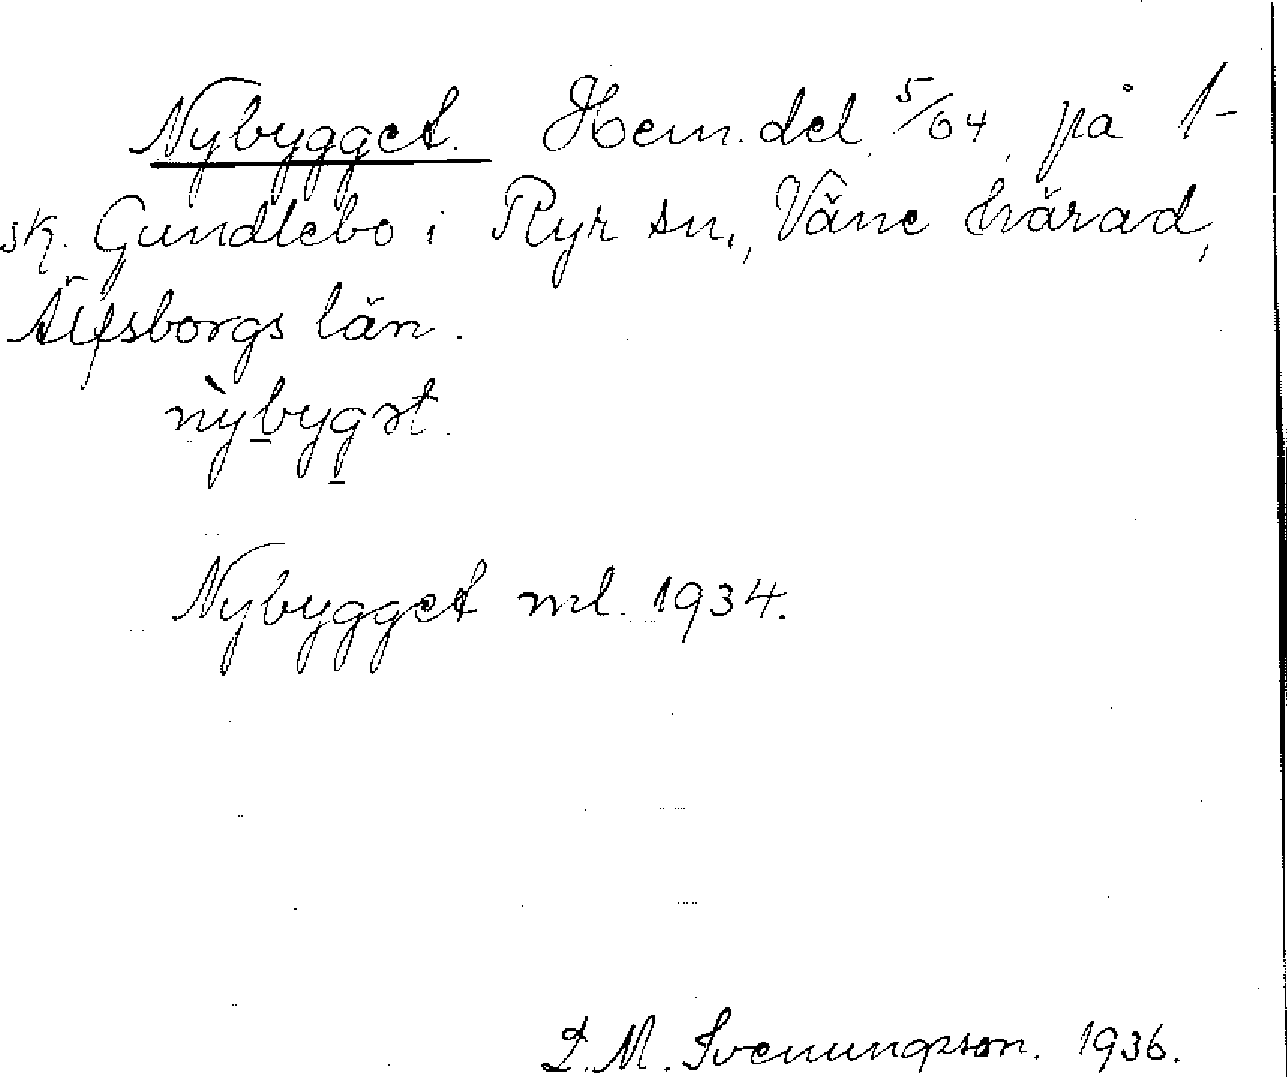 Nybygget. Hem.del 5/64 på 1-
sk. Gundlebo i Ryr sn., Väne härad,
Älfsborgs län.
nỳbygət.
Nybygget ml. 1934.
D.M. Svenungsson. 1936.